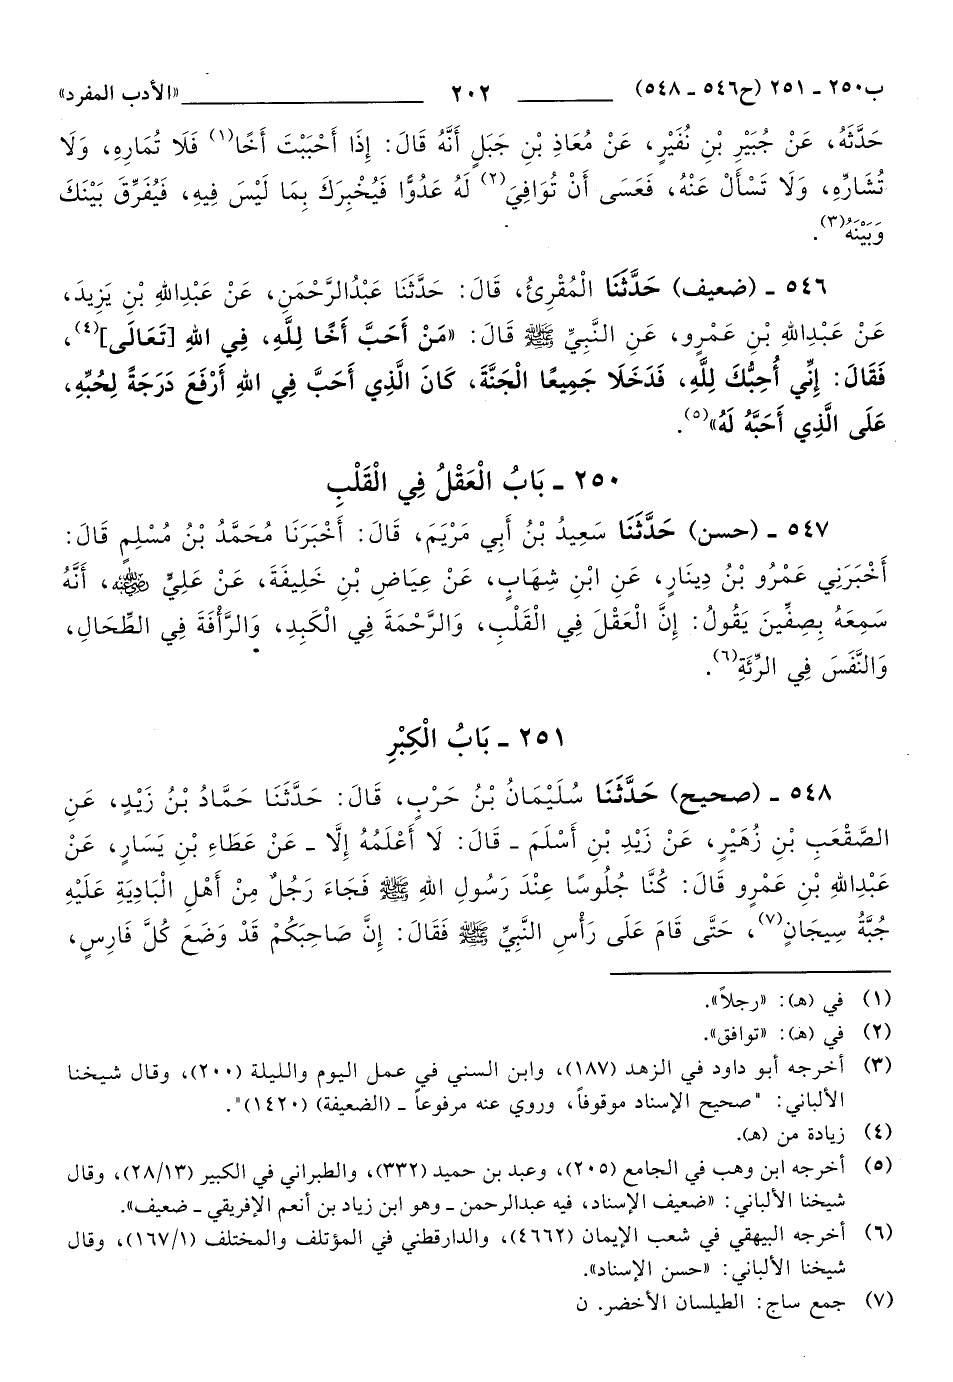 ب٢٥٠ ـ ٢٥١ (ح٥٤٦ ـ ٥٤٨) ٢٠٢ «الأدب المفرد»
حَدَّثَهُ، عَنْ جُبَيْرِ بْنِ نُفَيْرٍ، عَنْ مُعَاذِ بْنِ جَبَلٍ أَنَّهُ قَالَ: إِذَا أَحْبَبْتَ أَخًا(١) فَلَا تُمَارِهِ، وَلَا
تُشَارِّهِ، وَلَا تَسْأَلْ عَنْهُ، فَعَسَى أَنْ تُوَافِيَ(٢) لَهُ عَدُوًّا فَيُخْبِرَكَ بِمَا لَيْسَ فِيهِ، فَيُفَرِّقَ بَيْنَكَ
وَبَيْنَهُ(٣).
٥٤٦ ـ (ضعيف) حَدَّثَنَا الْمُقْرِئُ، قَالَ: حَدَّثَنَا عَبْدُالرَّحْمَنِ، عَنْ عَبْدِاللهِ بْنِ يَزِيدَ،
عَنْ عَبْدِاللهِ بْنِ عَمْرٍو، عَنِ النَّبِيِّ ﷺ قَالَ: «مَنْ أَحَبَّ أَخًا لِلَّهِ، فِي اللهِ [تَعَالَى](٤)،
فَقَالَ: إِنِّي أُحِبُّكَ لِلَّهِ، فَدَخَلَا جَمِيعًا الْجَنَّةَ، كَانَ الَّذِي أَحَبَّ فِي اللهِ أَرْفَعَ دَرَجَةً لِحُبِّهِ،
عَلَى الَّذِي أَحَبَّهُ لَهُ»(٥).
٢٥٠ ـ بَابُ الْعَقْلُ فِي الْقَلْبِ
٥٤٧ ـ (حسن) حَدَّثَنَا سَعِيدُ بْنُ أَبِي مَرْيَمَ، قَالَ: أَخْبَرَنَا مُحَمَّدُ بْنُ مُسْلِمٍ قَالَ:
أَخْبَرَنِي عَمْرُو بْنُ دِينَارٍ، عَنِ ابْنِ شِهَابٍ، عَنْ عِيَاضِ بْنِ خَلِيفَةَ، عَنْ عَلِيٍّ رضي الله عنه، أَنَّهُ
سَمِعَهُ بِصِفِّينَ يَقُولُ: إِنَّ الْعَقْلَ فِي الْقَلْبِ، وَالرَّحْمَةَ فِي الْكَبِدِ، وَالرَّأْفَةَ فِي الطِّحَالِ،
وَالنَّفَسَ فِي الرِّئَةِ(٦).
٢٥١ ـ بَابُ الْكِبْرِ
٥٤٨ ـ (صحيح) حَدَّثَنَا سُلَيْمَانُ بْنُ حَرْبٍ، قَالَ: حَدَّثَنَا حَمَّادُ بْنُ زَيْدٍ، عَنِ
الصَّقْعَبِ بْنِ زُهَيْرٍ، عَنْ زَيْدِ بْنِ أَسْلَمَ ـ قَالَ: لَا أَعْلَمُهُ إِلَّا ـ عَنْ عَطَاءِ بْنِ يَسَارٍ، عَنْ
عَبْدِاللهِ بْنِ عَمْرٍو قَالَ: كُنَّا جُلُوسًا عِنْدَ رَسُولِ اللهِ ﷺ فَجَاءَ رَجُلٌ مِنْ أَهْلِ الْبَادِيَةِ عَلَيْهِ
جُبَّةُ سِيجَانٍ(٧)، حَتَّى قَامَ عَلَى رَأْسِ النَّبِيِّ ﷺ فَقَالَ: إِنَّ صَاحِبَكُمْ قَدْ وَضَعَ كُلَّ فَارِسٍ،
(١) في (هـ): «رجلاً».
(٢) في (هـ): «توافق».
(٣) أخرجه أبو داود في الزهد (١٨٧)، وابن السني في عمل اليوم والليلة (٢٠٠)، وقال شيخنا
الألباني: "صحيح الإسناد موقوفاً، وروي عنه مرفوعاً ـ (الضعيفة) (١٤٢٠)".
(٤) زيادة من (هـ).
(٥) أخرجه ابن وهب في الجامع (٢٠٥)، وعبد بن حميد (٣٣٢)، والطبراني في الكبير (٢٨/١٣)، وقال
شيخنا الألباني: «ضعيف الإسناد، فيه عبدالرحمن ـ وهو ابن زياد بن أنعم الإفريقي ـ ضعيف».
(٦) أخرجه البيهقي في شعب الإيمان (٤٦٦٢)، والدارقطني في المؤتلف والمختلف (١٦٧/١)، وقال
شيخنا الألباني: «حسن الإسناد».
(٧) جمع ساج: الطيلسان الأخضر. ن